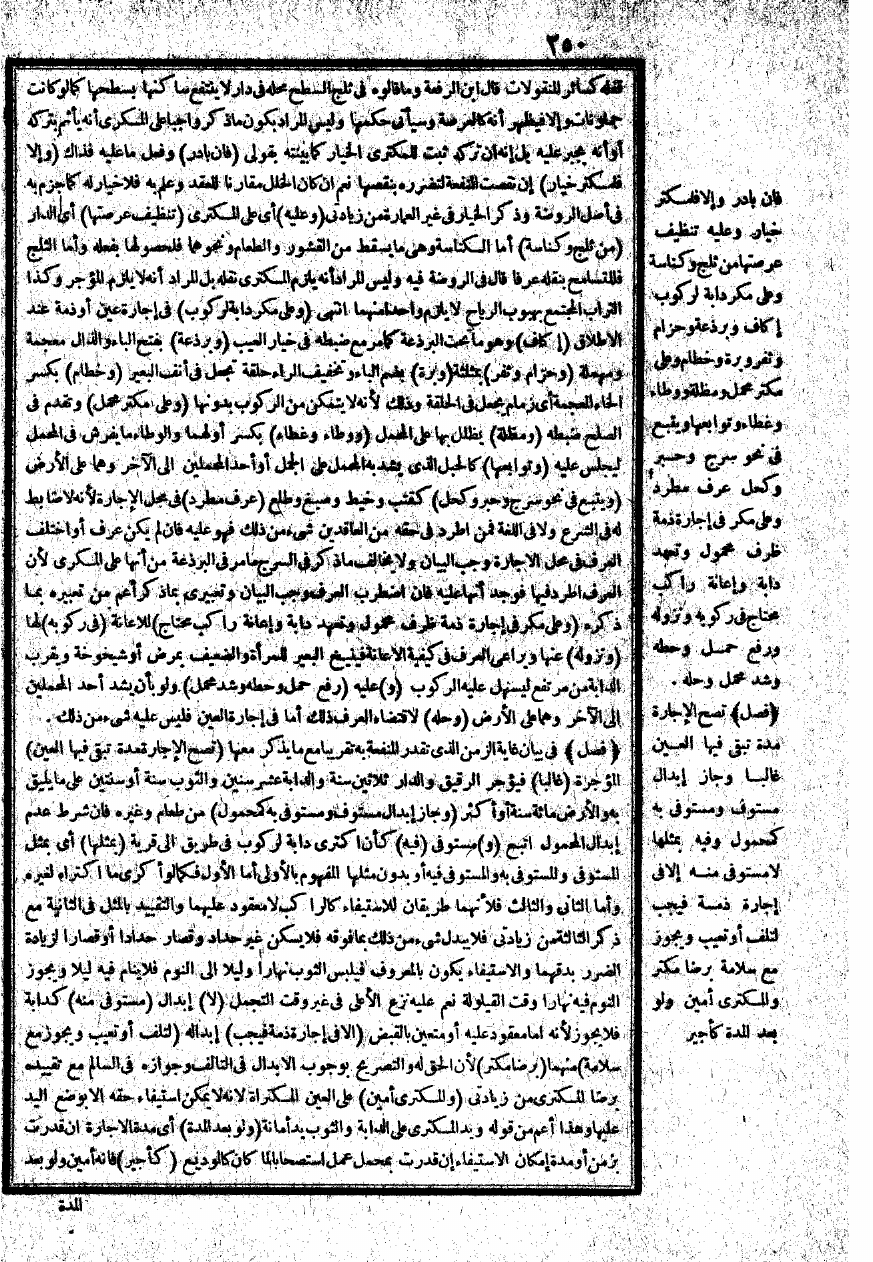 ٢٥٠
فنقله كسائر المنقولات قال ابن الرفعة وما قالوه فى ثلج السطح محله فى دار لا ينتفع ساكنها بسطحها كما لو كانت
جملونات وإلا فيظهر أنه كالعرصة وسيأتى حكمها وليس المراد بكون ما ذكر واجبا على المكرى أنه يأثم بتركه
أو أنه يجبر عليه بل إنه إن تركه ثبت للمكترى الخيار كما بينته بقولى (فان بادر) وفعل ما عليه فذاك (وإلا
فلمكتر خيار) إن نقصت المنفعة لتضرره بنقصها نعم إن كان الخلل مقارنا للعقد وعلم به فلا خيار له كما جزم به
فى أصل الروضة وذكر الخيار فى غير العمارة من زيادتى (وعليه) أى على المكترى (تنظيف عرصتها) أى الدار
(من ثلج وكناسة) أما الكناسة وهى ما يسقط من القشور والطعام ونحوهما فلحصولها بفعله وأما الثلج
فللتسامح بنقله عرفا قال فى الروضة فيه وليس المراد أنه يلزم المكترى نقله بل المراد أنه لا يلزم المؤجر وكذا
التراب المجتمع بهبوب الرياح لا يلزم واحدا منهما انتهى (وعلى مكر دابة لركوب) فى إجارة عين أو ذمة عند
الاطلاق (إكاف) وهو ما تحت البرذعة كما مر مع ضبطه فى خيار العيب (وبرذعة) بفتح الباء والذال معجمة
ومهملة (وحزام وثفر) بمثلثة (وبرة) بضم الباء وتخفيف الراء حلقة تجعل فى أنف البعير (وخطام) بكسر
الخاء المعجمة أى زمام يجعل فى الحلقة وذلك لأنه لا يتمكن من الركوب بدونها (وعلى مكتر محمل) وتقدم فى
الصلح ضبطه (ومظلة) يظلل بها على المحمل (ووطاء وغطاء) بكسر أولهما والوطاء ما يفرش فى المحمل
ليجلس عليه (وتوابعها) كالحبل الذى يشد به المحمل على الجمل أو أحد المحملين الى الآخر وهما على الأرض
(ويتبع فى نحو سرج وحبر وكحل) كقتب وخيط وصبغ وطلع (عرف مطرد) فى محل الإجارة لأنه لا ضابط
له فى الشرع ولا فى اللغة فمن اطرد فى حقه من العاقدين شىء من ذلك فهو عليه فان لم يكن عرف أو اختلف
العرف فى محل الاجارة وجب البيان ولا يخالف ما ذكر فى السرج ما مر فى البرذعة من أنها على المكرى لأن
العرف اطرد فيها فوجد أنها عليه فان اضطرب العرف وجب البيان وتعبيرى بما ذكر أعم من تعبيره بما
ذكره (وعلى مكر فى إجارة ذمة ظرف محمول وتعهد دابة وإعانة راكب محتاج) للاعانة (فى ركوبه) لها
(ونزوله) عنها ويراعى العرف فى كيفية الاعانة فينيخ البعير للمرأة والضعيف بمرض أو شيخوخة ويقرب
الدابة من مرتفع ليسهل عليه الركوب (و) عليه (رفع حمل وحطه وشد محمل) ولو بأن يشد أحد المحملين
إلى الآخر وهما على الأرض (وحله) لاقتضاء العرف ذلك أما فى إجارة العين فليس عليه شىء من ذلك .
﴿فصل﴾ فى بيان غاية الزمن الذى تقدر المنفعة به تقريبا مع ما يذكر معها (تصح الإجارة مدة تبقى فيها العين)
المؤجرة (غالبا) فيؤجر الرقيق والدار ثلاثين سنة والدابة عشر سنين والثوب سنة أو سنتين على ما يليق
به والأرض مائة سنة أو أكثر (وجاز إبدال مستوف ومستوفى به كمحمول) من طعام وغيره فان شرط عدم
إبدال المحمول اتبع (و) مستوفى (فيه) كأن اكترى دابة لركوب فى طريق الى قرية (بمثلها) أى بمثل
المستوفى والمستوفى به والمستوفى فيه أو بدون مثلها المفهوم بالأولى أما الأول فكما لو أكرى ما اكتراه لغيره
وأما الثانى والثالث فلأنهما طريقان للاستيفاء كالراكب لا معقود عليهما والتقييد بالمثل فى الثانية مع
ذكر الثالثة من زيادتى فلا يبدل شىء من ذلك بما فوقه فلا يسكن غير حداد وقصار حدادا أو قصارا لزيادة
الضرر بدقهما والاستيفاء يكون بالمعروف فيلبس الثوب نهارا وليلا الى النوم فلا ينام فيه ليلا ويجوز
النوم فيه نهارا وقت القيلولة نعم عليه نزع الأعلى فى غير وقت التجمل (لا) إبدال (مستوفى منه) كدابة
فلا يجوز لأنه اما معقود عليه أو متعين بالقبض (الا فى إجارة ذمة فيجب) إبداله (لتلف أو تعيب ويجوز مع
سلامة) منهما (برضا مكتر) لأن الحق له والتصريح بوجوب الابدال فى التالف وجوازه فى السالم مع تقييده
برضا المكترى من زيادتى (والمكترى أمين) على العين المكتراة لأنه لا يمكن استيفاء حقه الا بوضع اليد
عليها وهذا أعم من قوله ويد المكترى على الدابة والثوب يد أمانة (ولو بعد المدة) أى مدة الاجارة ان قدرت
بزمن أو مدة إمكان الاستيفاء إن قدرت بمحل عمل استصحابا لما كان كالوديع (كأجير) فانه أمين ولو بعد
المدة
فان بادر وإلا فلمكتر
خيار وعليه تنظيف
عرصتها من ثلج وكناسة
وعلى مكر دابة لركوب
إكاف وبرذعة وحزام
وثفر وبرة وخطام وعلى
مكتر محمل ومظلة ووطاء
وغطاء وتوابعها ويتبع
فى نحو سرج وحبر
وكحل عرف مطرد
وعلى مكر فى إجارة ذمة
ظرف محمول وتعهد
دابة وإعانة راكب
محتاج فى ركوبه ونزوله
ورفع حمل وحطه
وشد محمل وحله .
﴿فصل﴾ تصح الإجارة
مدة تبقى فيها العين
غالبا وجاز إبدال
مستوف ومستوفى به
كمحمول وفيه بمثلها
لا مستوفى منه إلا فى
إجارة ذمة فيجب
لتلف أو تعيب ويجوز
مع سلامة برضا مكتر
والمكترى أمين ولو
بعد المدة كأجير